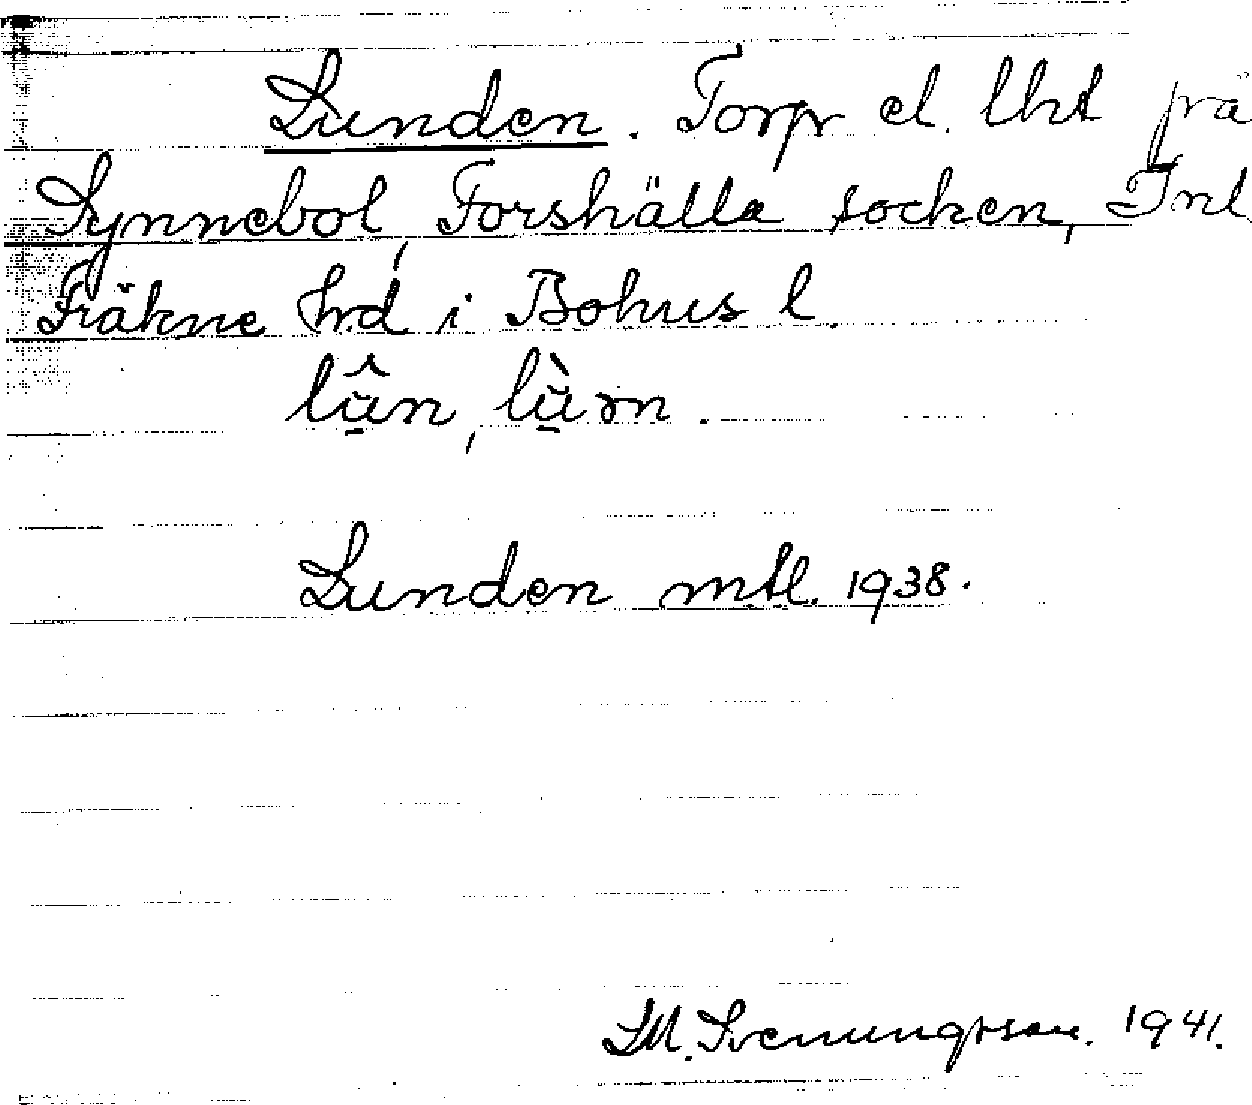 Lunden. Torp el. lht på
Synnebol, Forshälla socken, Inl.
Fräkne hrd i Bohus l.
lũ̂n, lũ̀ɤn.
Lunden mtl. 1938.
SM. Svenungsson. 1941.